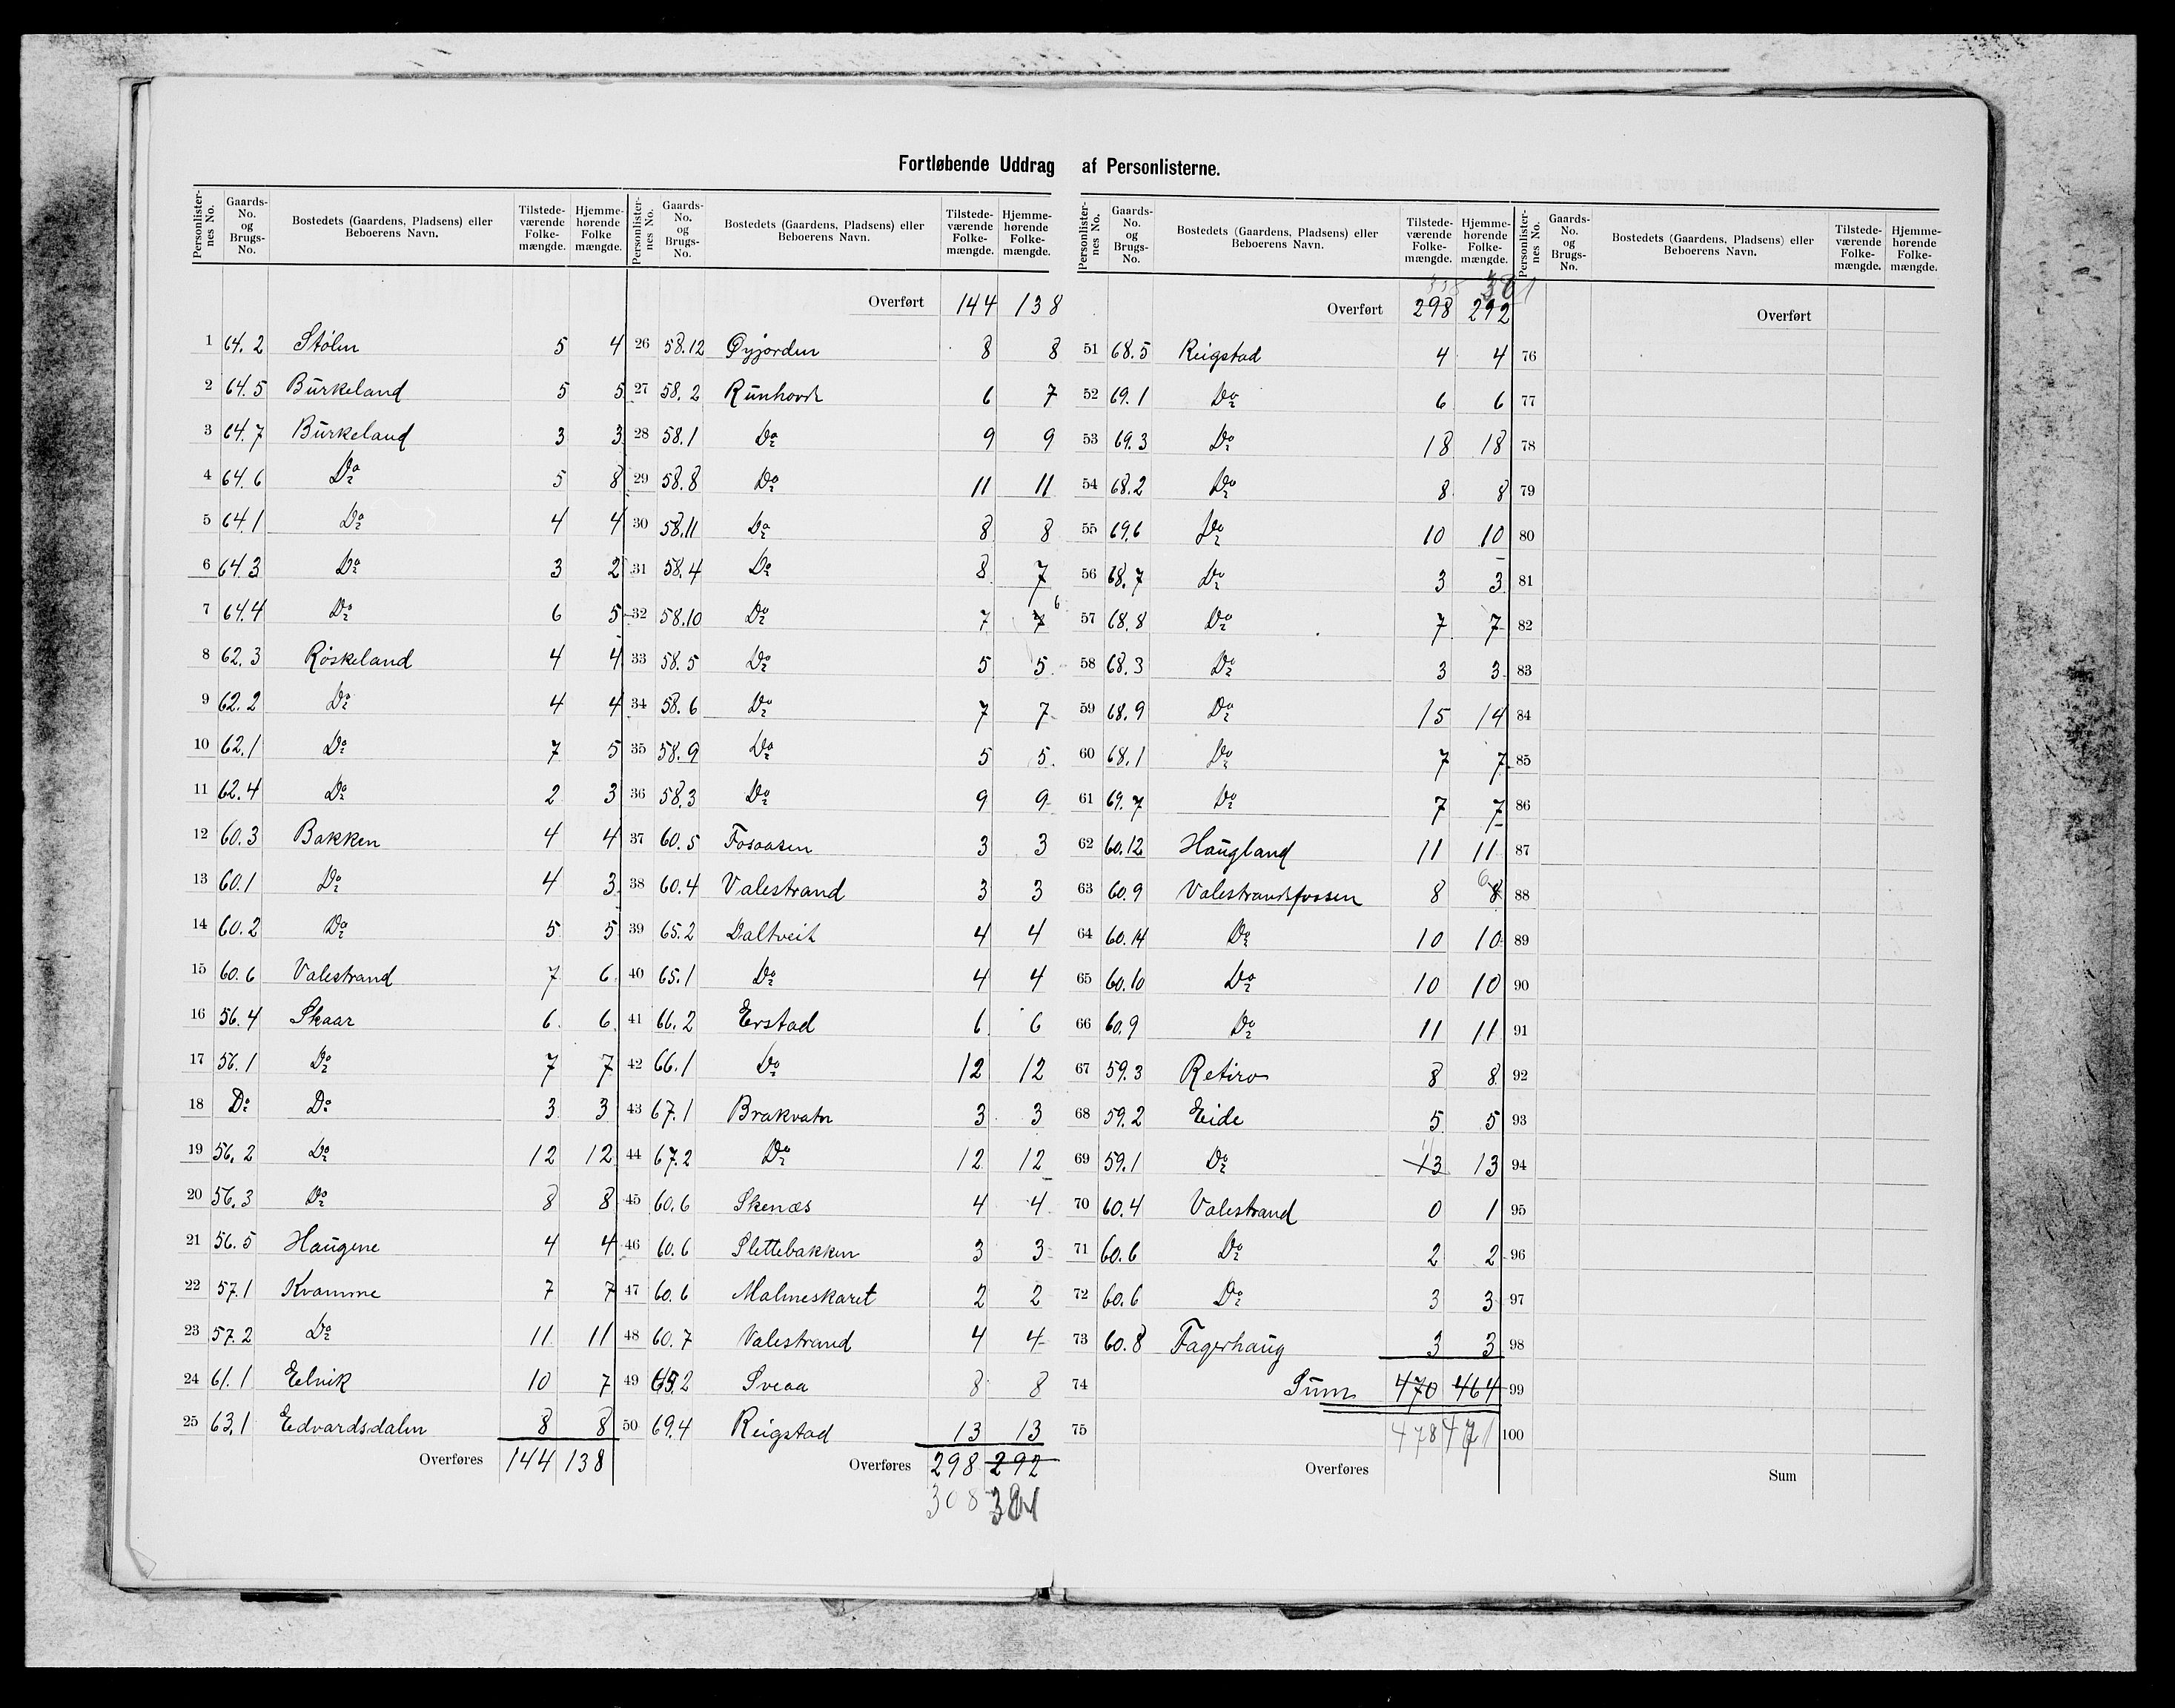 Fortløbende Uddrag af Personlisterne.
Personlister-nes No. | Gaards-No. og Brugs-No. | Bostedets (Gaardens, Pladsens) eller Beboerens Navn. | Tilstede-værende Folke-mængde. | Hjemme-hørende Folke mængde.
1 64.2 Stølen 5 4
2 64.5 Burkeland 5 5
3 64.7 Burkeland 3 3
4 64.6 Do 5 8
5 64.1 Do 4 4
6 64.3 Do 3 2
7 64.4 Do 6 5
8 62.3 Røskeland 4 4
9 62.2 Do 4 4
10 62.1 Do 7 5
11 62.4 Do 2 3
12 60.3 Bakken 4 4
13 60.1 Do 4 3
14 60.2 Do 5 5
15 60.6 Valestrand 7 6
16 56.4 Skaar 6 6
17 56.1 Do 7 7
18 Do Do 3 3
19 56.2 Do 12 12
20 56.3 Do 8 8
21 56.5 Haugene 4 4
22 57.1 Kvamme 7 7
23 57.2 Do 11 11
24 61.1 Eelvik 10 7
25 63.1 Edvardsdalen 8 8
Overføres 144 138
Personlister-nes No. | Gaards-No. og Brugs-No. | Bostedets (Gaardens, Pladsens) eller Beboerens Navn. | Tilstede-værende Folke-mængde. | Hjemme-hørende Folke-mængde.
Overført 144 138
26 58.12 Øyjorden 8 8
27 58.2 Runhovd 6 7
28 58.1 Do 9 9
29 58.8 Do 11 11
30 58.11 Do 8 8
31 58.4 Do 8 7
32 58.10 Do 7 7 6
33 58.5 Do 5 5
34 58.6 Do 7 7
35 58.9 Do 5 5
36 58.3 Do 9 9
37 60.5 Fosaasen 3 3
38 60.4 Valestrand 3 3
39 65.2 Daltveit 4 4
40 65.1 Do 4 4
41 66.2 Erstad 6 6
42 66.1 Do 12 12
43 67.1 Brakvatn 3 3
44 67.2 Do 12 12
45 60.6 Skenæs 4 4
46 60.6 Slettebakken 3 3
47 60.6 Malmeskaret 2 2
48 60.7 Valestrand 4 4
49 65.2 Sveaa 8 8
50 69.4 Reigstad 13 13
Overføres 298 292
308 301
Personlister-nes No. | Gaards-No. og Brugs-No. | Bostedets (Gaardens, Pladsens) eller Beboerens Navn. | Tilstede-værende Folke-mængde. | Hjemme-hørende Folke-mængde.
301
Overført 298 292
51 68.5 Reigstad 4 4
52 69.1 Do 6 6
53 69.3 Do 18 18
54 68.2 Do 8 8
55 69.6 Do 10 10
56 68.7 Do 3 3
57 68.8 Do 7 7
58 68.3 Do 3 3
59 68.9 Do 15 14
60 68.1 Do 7 7
61 69.7 Do 7 7
62 60.12 Haugland 11 11
63 60.9 Valestrandsfossen 8 8 6
64 60.14 Do 10 10
65 60.10 Do 10 10
66 60.9 Do 11 11
67 59.3 Retiro 8 8
68 59.2 Eide 5 5
69 59.1 Do 13 11 13
70 60.4 Valestrand 0 1
71 60.6 Do 2 2
72 60.6 Do 3 3
73 60.8 Fagerhaug 3 3
74 Sum 470 464
75 478 471
Overføres
Personlister-nes No. | Gaards-No. og Brugs-No. | Bostedets (Gaardens, Pladsens) eller Beboerens Navn. | Tilstede-værende Folke-mængde. | Hjemme-hørende Folke-mængde.
Overført
76
77
78
79
80
81
82
83
84
85
86
87
88
89
90
91
92
93
94
95
96
97
98
99
100
Sum